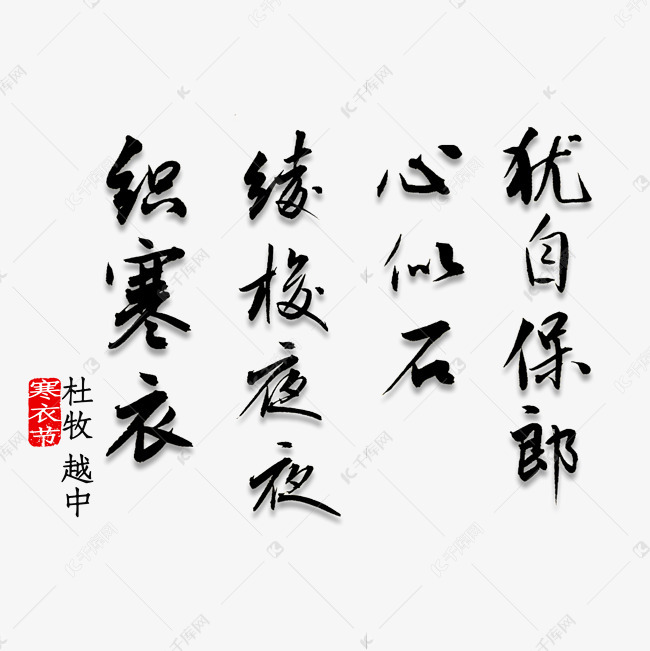 犹自保郎
心似石
绫梭夜夜
织寒衣
杜牧 越中
寒衣节
千库网